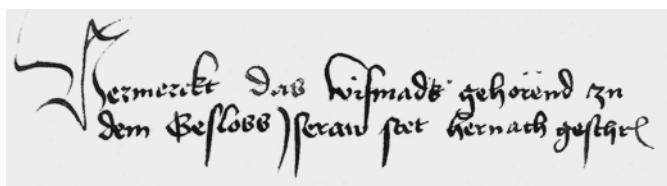 Vermerckt das wismads gehörend zu
dem Gesloss Iseraw stet hernach geschr